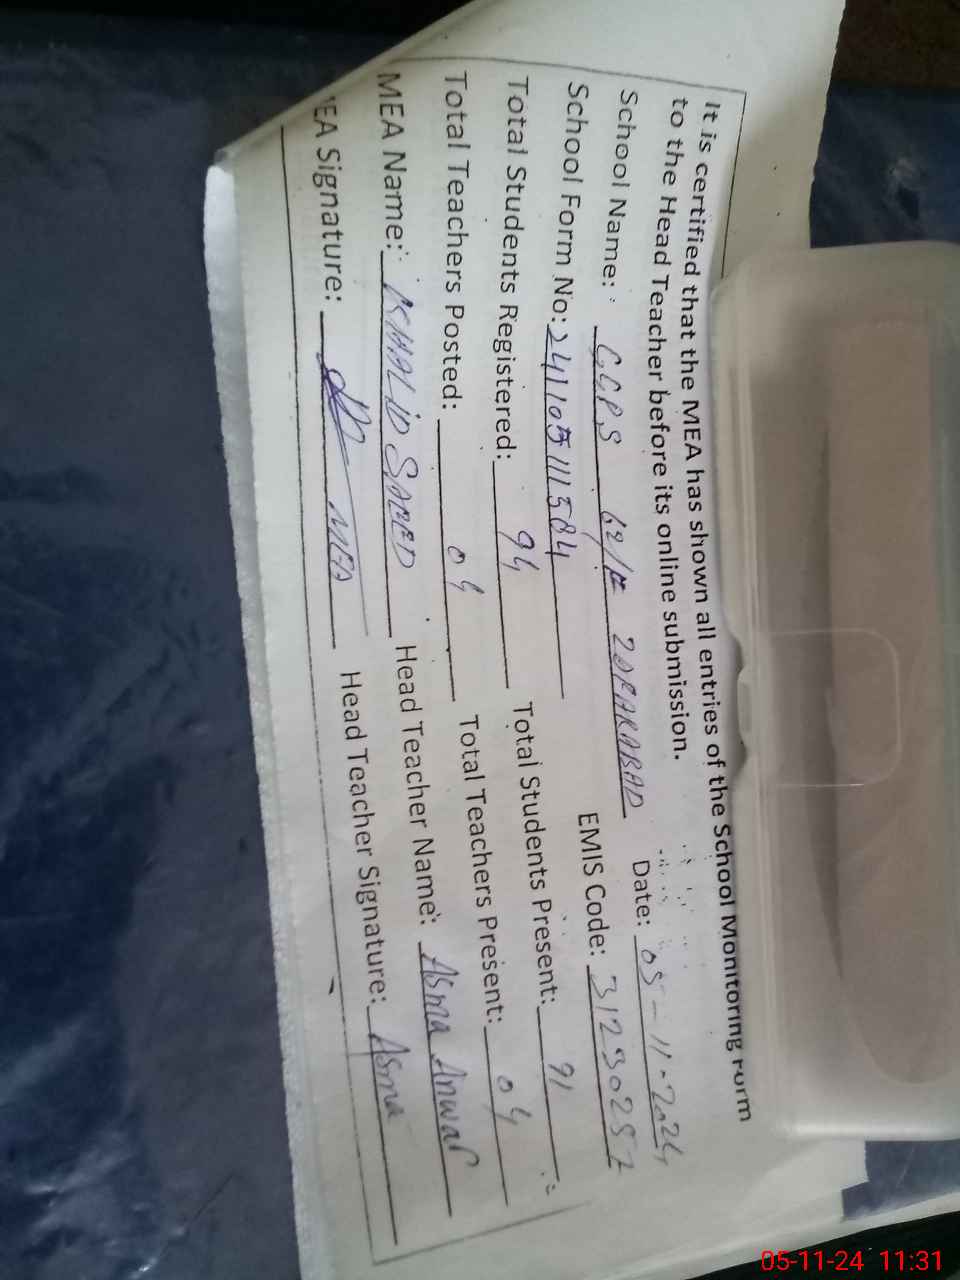 It is certified that the MEA has shown all entries of the School Monitoring Form
to the Head Teacher before its online submission.
School Name: GGPS 62/F ZAFARABAD Date: 05-11-2024
School Form No: 241105111584 EMIS Code: 31230257
Total Students Registered: 94 Total Students Present: 91
Total Teachers Posted: 04 Total Teachers Present: 04
MEA Name: KHALID SAEED Head Teacher Name: Asma Anwar
MEA Signature: MEA Head Teacher Signature: Asma
05-11-24 11:31